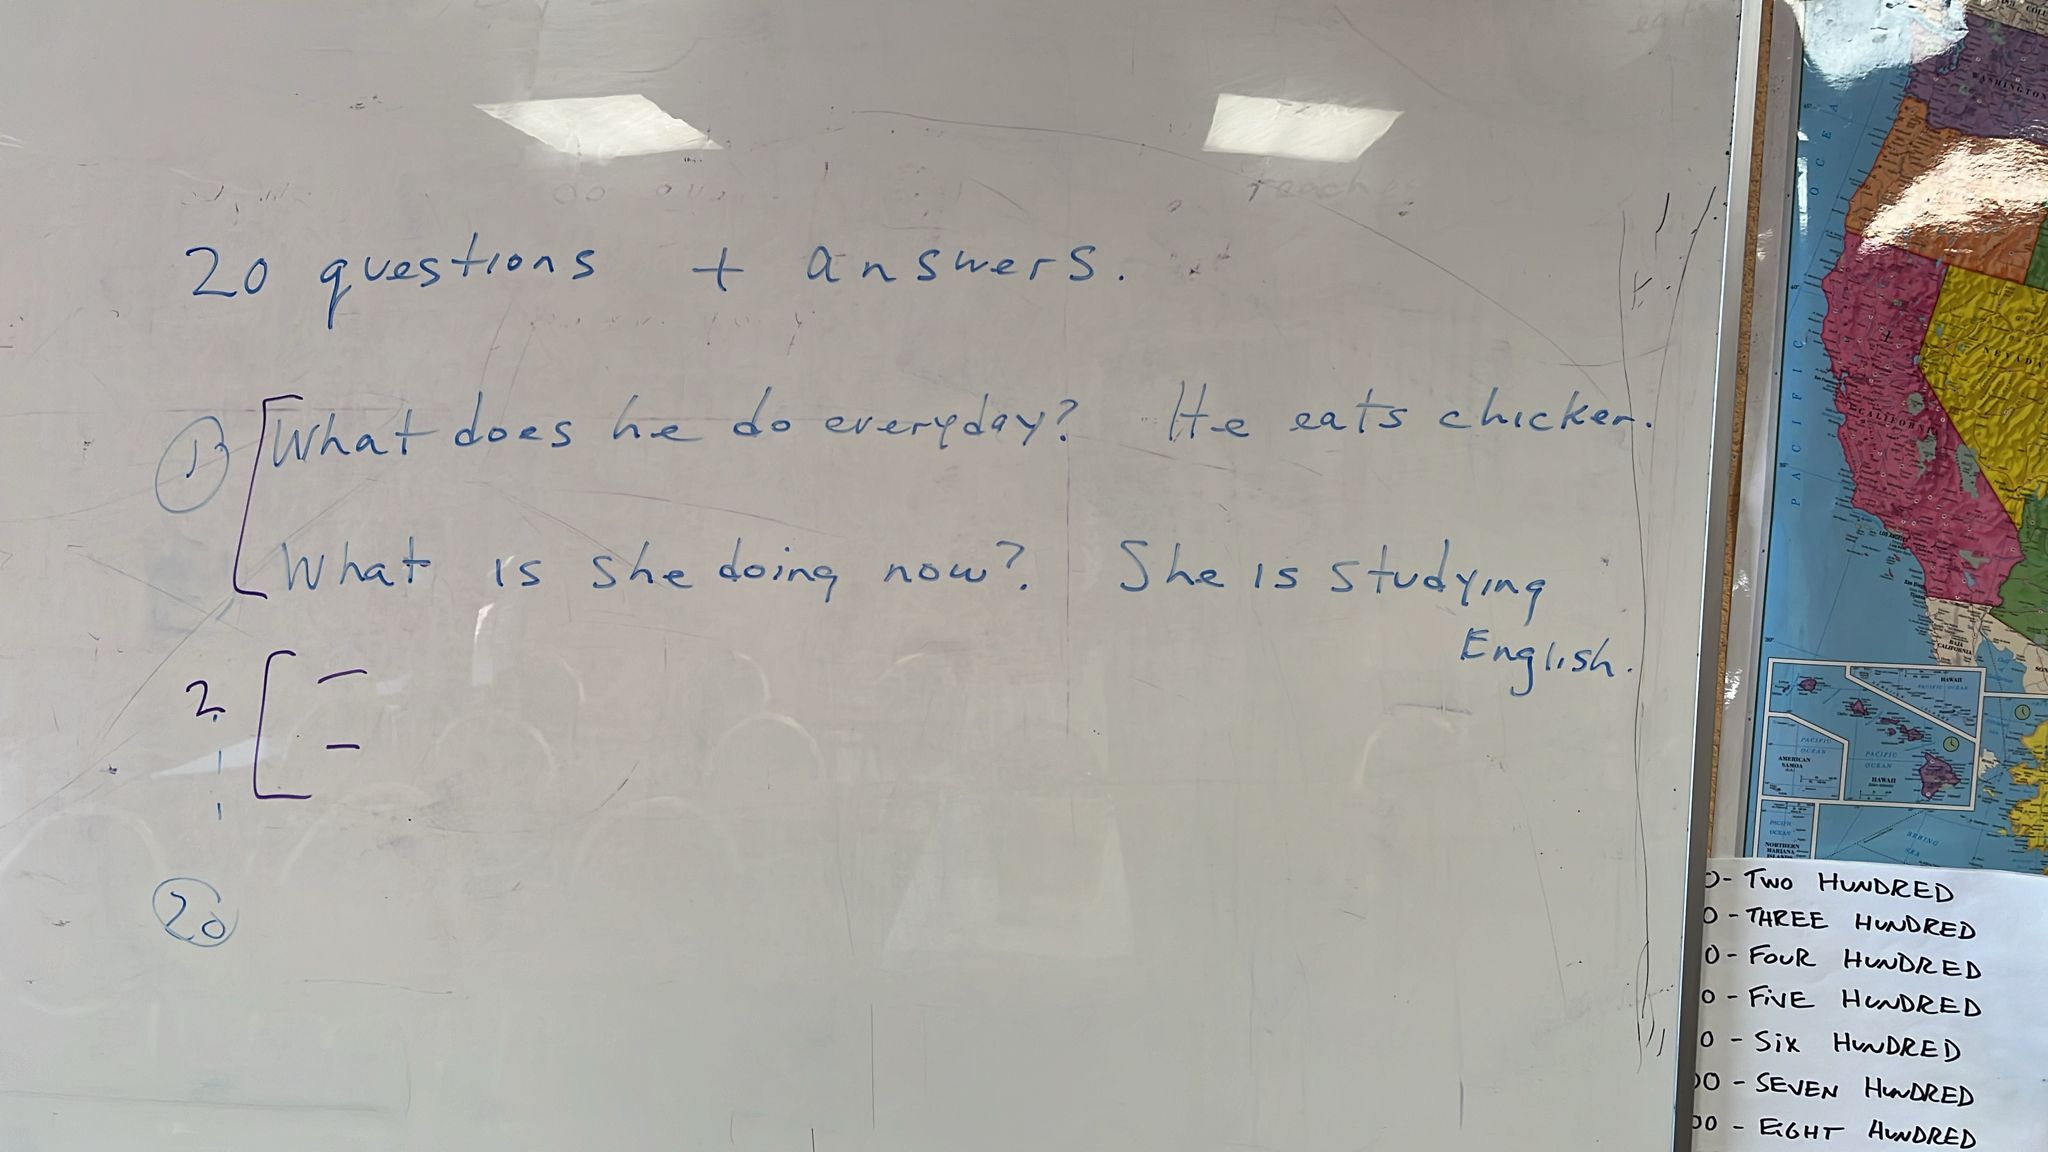 20 questions + answers.
1 What does he do everyday? He eats chicken.
What is she doing now? She is studying
English.
2.
20
WASHINGTON
NEVADA
CALIFORNIA
PACIFIC OCE
LOS ANGELES
BAJA CALIFORNIA
HAWAII
PACIFIC OCEAN
PACIFIC OCEAN
AMERICAN SAMOA
PACIFIC OCEAN
HAWAII
PACIFIC OCEAN
NORTHERN MARIANA ISLANDS
BERING SEA
0- TWO HUNDRED
0 - THREE HUNDRED
0 - FOUR HUNDRED
0 - FIVE HUNDRED
0 - SIX HUNDRED
00 - SEVEN HUNDRED
00 - EIGHT HUNDRED